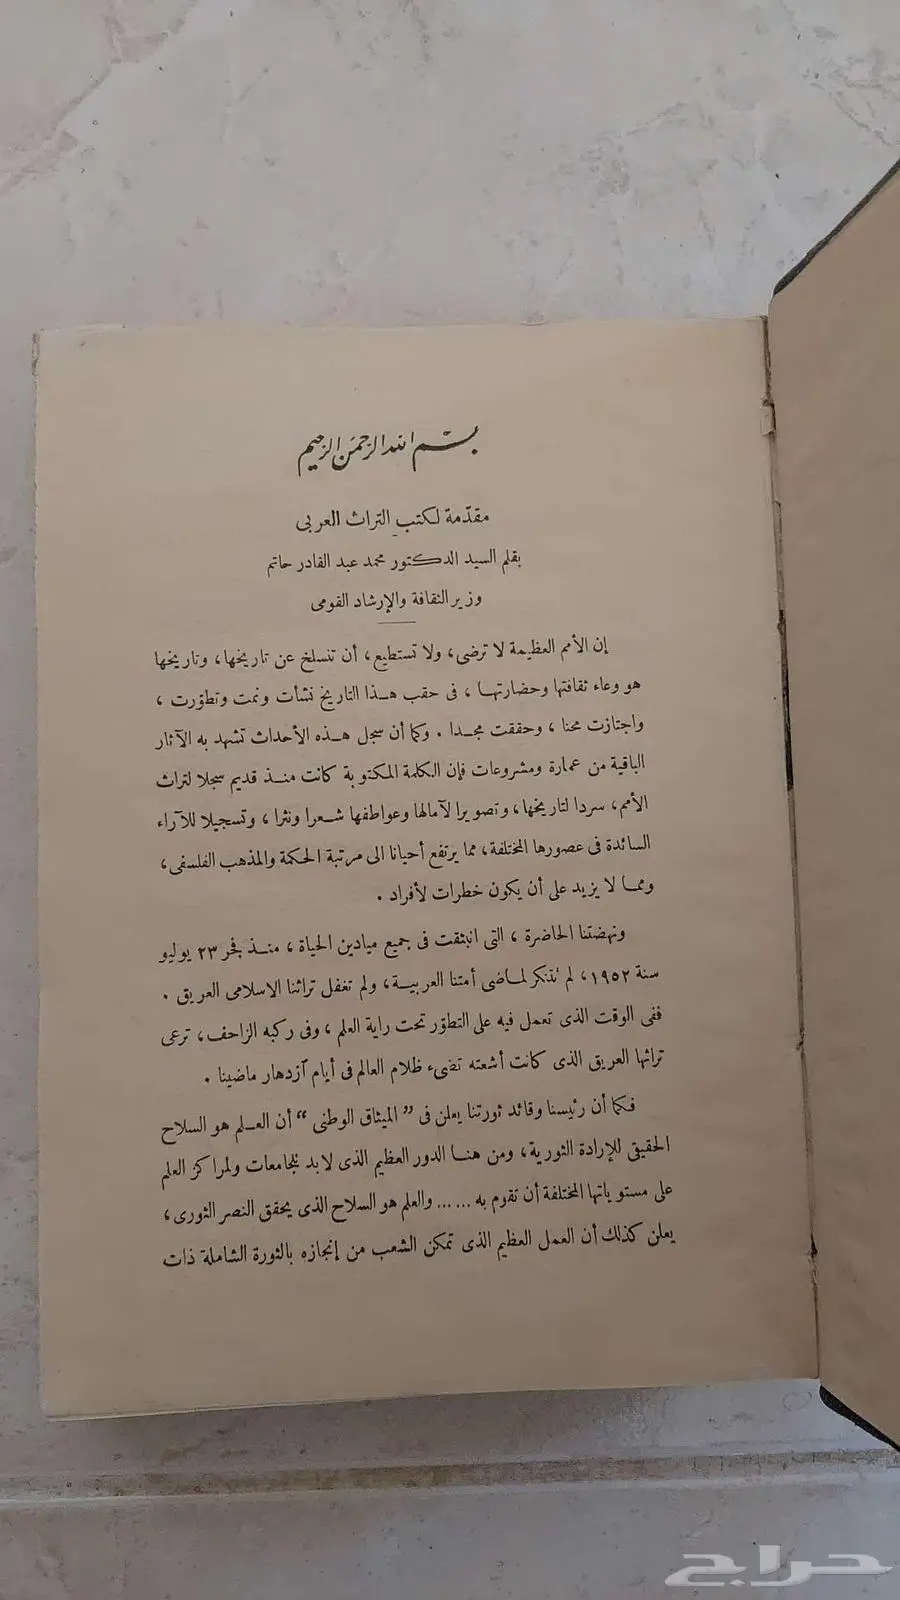 بسم الله الرحمن الرحيم
مقدّمة لكتب التراث العربى
بقلم السيد الدكتور محمد عبد القادر حاتم
وزير الثقافة والإرشاد القومى
إن الأمم العظيمة لا ترضى، ولا تستطيع، أن تنسلخ عن تاريخها، وتاريخها
هو وعاء ثقافتها وحضارتها ، فى حقب هذا التاريخ نشأت ونمت وتطوّرت ،
واجتازت محنا ، وحققت مجدا . وكما أن سجل هذه الأحداث تشهد به الآثار
الباقية من عمارة ومشروعات فإن الكلمة المكتوبة كانت منذ قديم سجلا لتراث
الأمم، سردا لتاريخها، وتصويرا لآمالها وعواطفها شعرا ونثرا ، وتسجيلا للآراء
السائدة فى عصورها المختلفة، مما يرتفع أحيانا الى مرتبة الحكمة والمذهب الفلسفى،
ومما لا يزيد على أن يكون خطرات لأفراد .
ونهضتنا الحاضرة ، التى انبثقت فى جميع ميادين الحياة ، منذ فجر ٢٣ يوليو
سنة ١٩٥٢، لم تتنكر لماضى أمتنا العربية، ولم تغفل تراثنا الاسلامى العريق .
ففى الوقت الذى تعمل فيه على التطوّر تحت راية العلم ، وفى ركبه الزاحف، ترعى
تراثها العريق الذى كانت أشعته تضىء ظلام العالم فى أيام آزدهار ماضينا .
فكما أن رئيسنا وقائد ثورتنا يعلن فى ”الميثاق الوطنى“ أن العلم هو السلاح
الحقيقى للإرادة الثورية، ومن هنا الدور العظيم الذى لابد للجامعات ولمراكز العلم
على مستوياتها المختلفة أن تقوم به ...... والعلم هو السلاح الذى يحقق النصر الثورى،
يعلن كذلك أن العمل العظيم الذى تمكن الشعب من إنجازه بالثورة الشاملة ذات
حراج